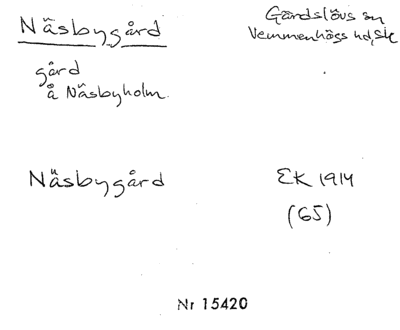 Näsbygård
Gärdslövs sn
Vemmenhögs hd, Sk
gård
å Näsbyholm.
Näsbygård
EK 1914
(65)
Nr 15420